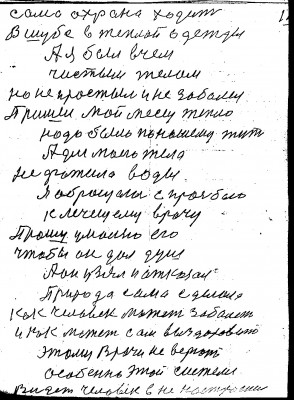 сама охрана ходит
В шубе в теплой одежды
А я был в чем
чистым телом
но не простыл и не заболел
Пришли мой месец тепло
надо было по нашему жить
А для моего тела
не хватило воды
Я обращался с прозбою
к лечещему врачу
Прошу умоляю его
чтобы он дал душ
А он узял и отказал
Природа сама сделала
как человек может заболеть
и как может сам выздороветь
этому врачи не верют
особенно этой системы
Видет человек в не настроении